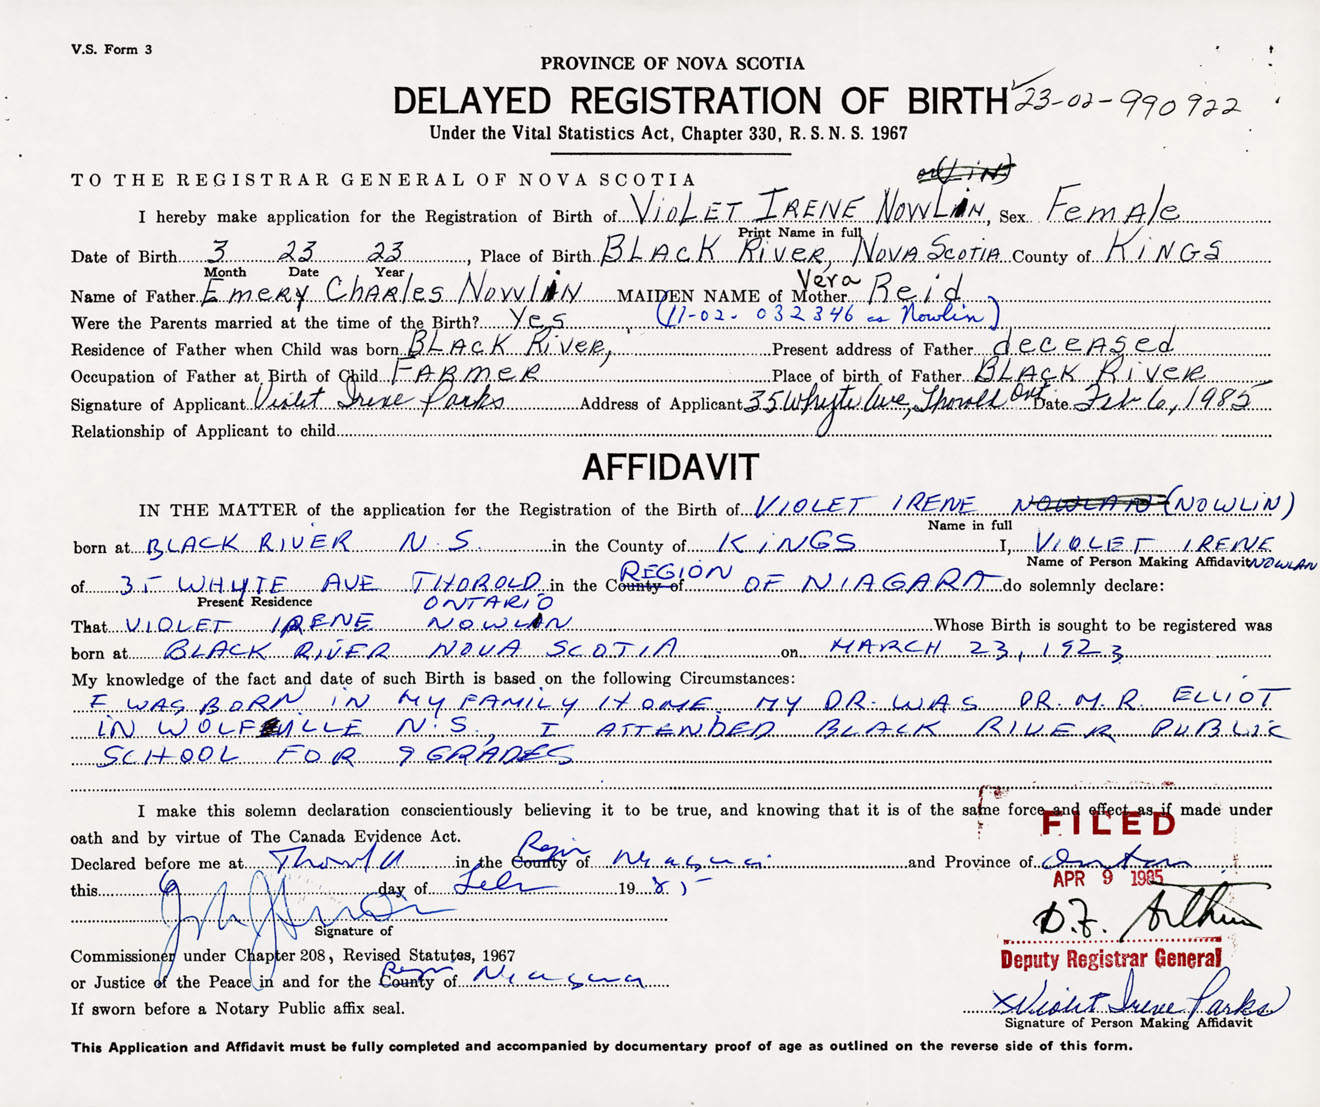 V.S. Form 3
PROVINCE OF NOVA SCOTIA
DELAYED REGISTRATION OF BIRTH 23-02-990922
Under the Vital Statistics Act, Chapter 330, R. S. N. S. 1967
TO THE REGISTRAR GENERAL OF NOVA SCOTIA
I hereby make application for the Registration of Birth of VIOLET IRENE NOWLIN, Sex Female
Print Name in full
Date of Birth 3 23 23, Place of Birth BLACK RIVER, NOVA SCOTIA County of KINGS
Month Date Year
Name of Father EMERY CHARLES NOWLIN MAIDEN NAME of Mother Vera Reid
Were the Parents married at the time of the Birth? Yes (11-02-032346 as Nowlin)
Residence of Father when Child was born BLACK RIVER, Present address of Father deceased
Occupation of Father at Birth of Child FARMER Place of birth of Father BLACK RIVER
Signature of Applicant Violet Irene Parks Address of Applicant 35 Whyte Ave, Thorold Ont Date Feb 6, 1985
Relationship of Applicant to child
AFFIDAVIT
IN THE MATTER of the application for the Registration of the Birth of VIOLET IRENE NOWLAN (NOWLIN)
Name in full
born at BLACK RIVER N.S. in the County of KINGS I, VIOLET IRENE
Name of Person Making Affidavit NOWLAN
of 35 WHYTE AVE THOROLD in the County of REGION OF NIAGARA do solemnly declare:
Present Residence ONTARIO
That VIOLET IRENE NOWLIN Whose Birth is sought to be registered was
born at BLACK RIVER NOVA SCOTIA on MARCH 23, 1923
My knowledge of the fact and date of such Birth is based on the following Circumstances:
I WAS BORN IN MY FAMILY HOME. MY DR. WAS DR. M.R. ELLIOT
IN WOLFVILLE N.S., I ATTENDED BLACK RIVER PUBLIC
SCHOOL FOR 9 GRADES
I make this solemn declaration conscientiously believing it to be true, and knowing that it is of the same force and effect as if made under
oath and by virtue of The Canada Evidence Act.
FILED
Declared before me at Thorold in the County of Region Niagara and Province of Ontario
APR 9 1985
this 6 day of Feb 1985
D.F. Arthur
Signature of
Commissioner under Chapter 208, Revised Statutes, 1967
Deputy Registrar General
or Justice of the Peace in and for the County of Region Niagara
X Violet Irene Parks
If sworn before a Notary Public affix seal.
Signature of Person Making Affidavit
This Application and Affidavit must be fully completed and accompanied by documentary proof of age as outlined on the reverse side of this form.